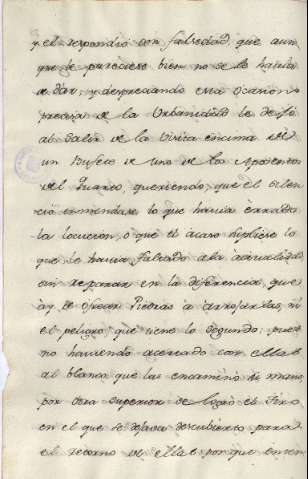 y el respondió con falsedad, que aun
que le pareciese bien no se la havia
de dar; y despreciando esta ocasion
precisa de la Urbanidad la dexó
al salir de la Visita encima de
un Bufete de uno de los Aposentos
del Quarto, queriendo, que el silen
cio enmendase lo que havia errado
la locucion, o que el acaso supliese lo
que le havia faltado a la
sin reparar en la diferencia, que
ay de ofrecer Piedras à arrojarlas, ni
el peligro, que tiene lo segundo: pues
no haviendo acertado con ellas
al blanco que las encaminó su mano
por otra superior se logró el tiro
en el que se dexava descubierto para
el retorno de ellas: porque